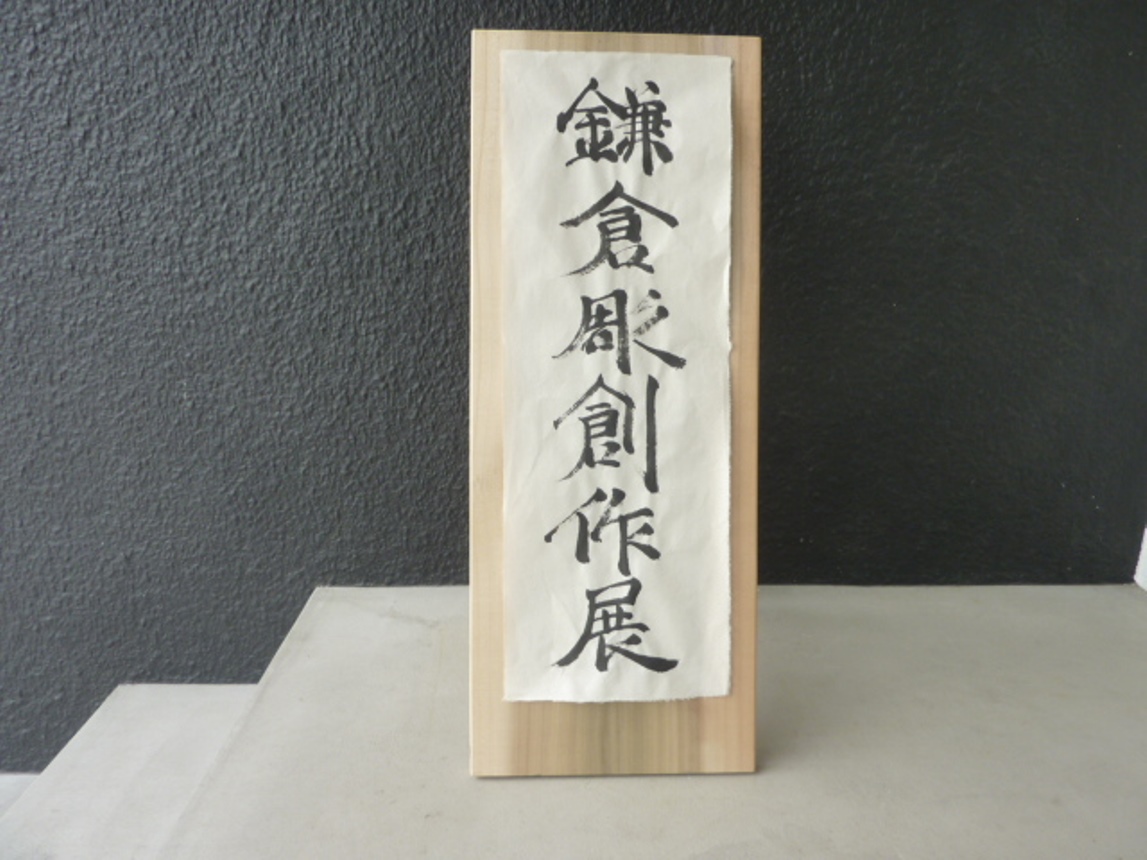 鎌倉彫創作展